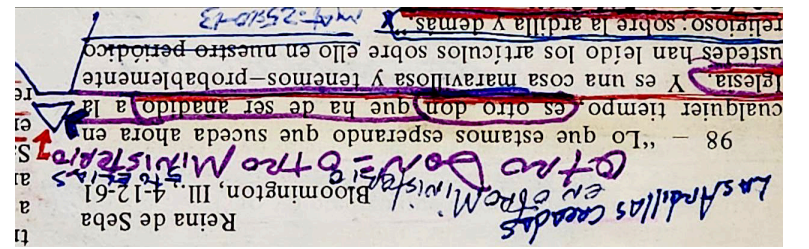 Reina de Seba
Bloomington, Ill. 4-12-61
Las Ardillas creadas
en otro Ministerio
Otro Don = Otro Ministerio
98 – “Lo que estamos esperando que suceda ahora en
cualquier tiempo, es otro don que ha de ser añadido a la
Iglesia. Y es una cosa maravillosa y tenemos–probablemente
ustedes han leído los artículos sobre ello en nuestro periódico
religioso; sobre la ardilla y demás.”
Mat=25:10-13